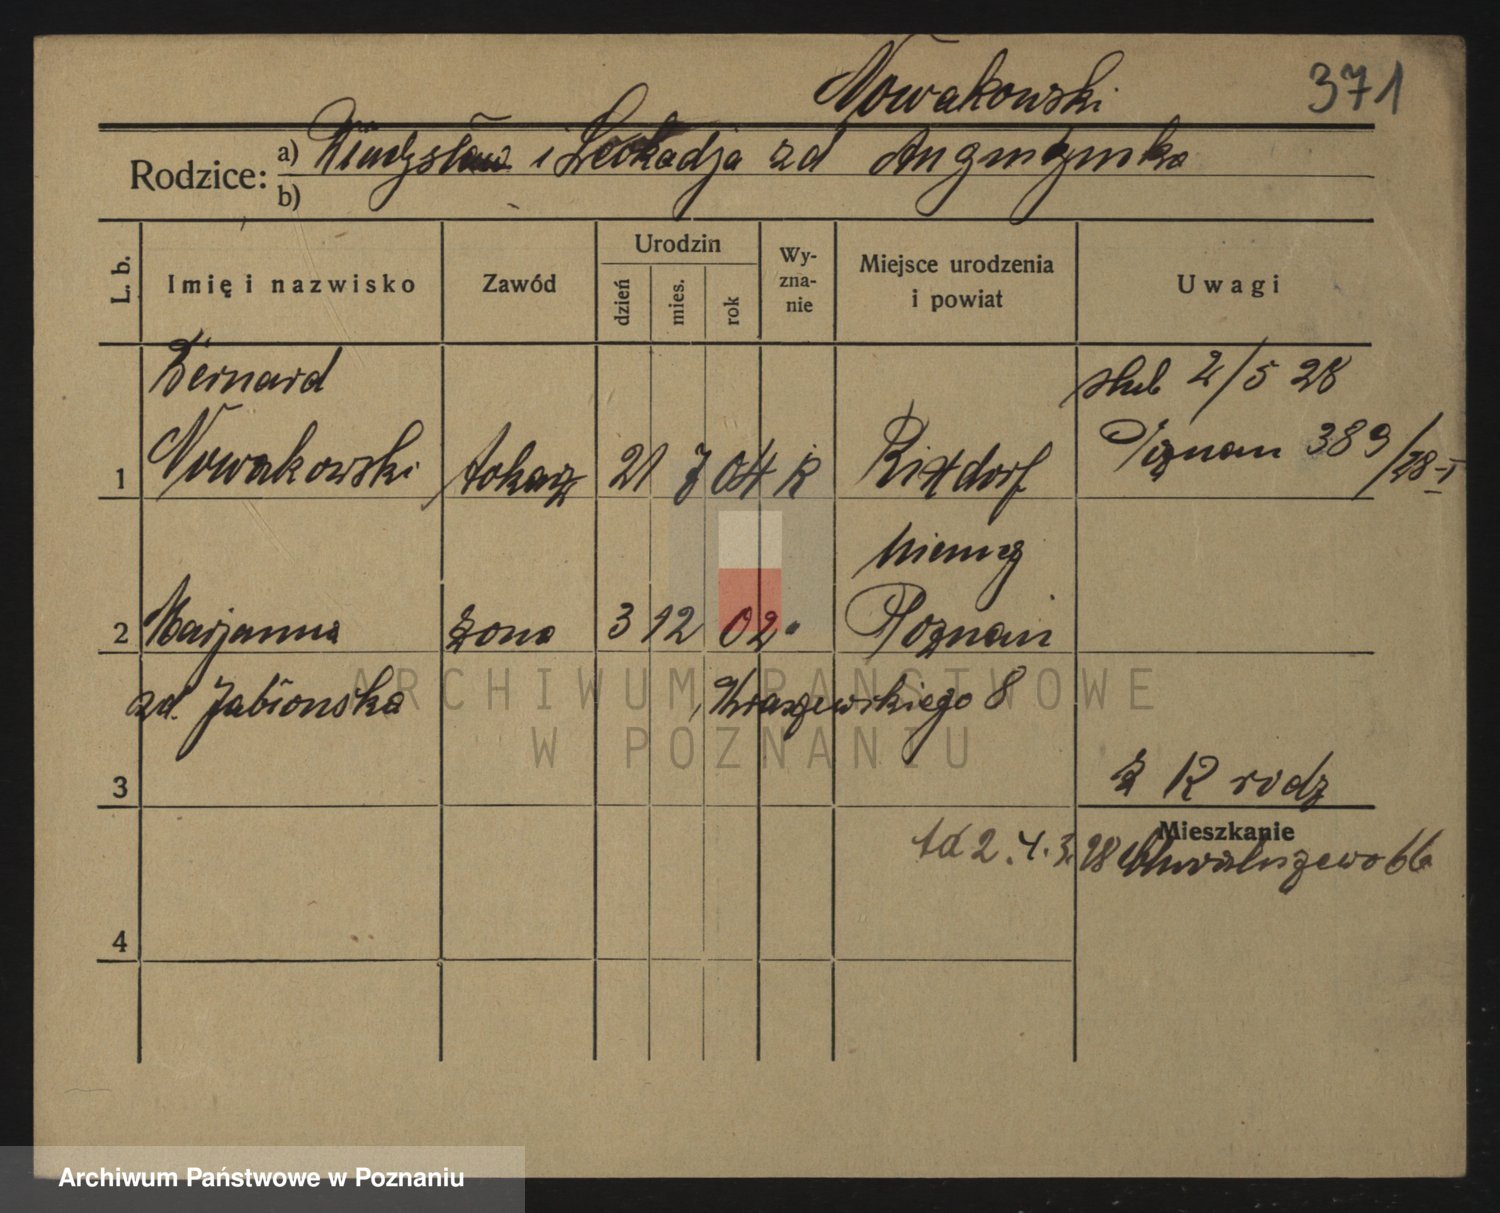 Nowakowski
371
Rodzice: a) Władysław i Leokadja zd
b)
L. b.
Imię i nazwisko
Zawód
Urodzin
dzień
mies.
rok
Wy-
zna-
nie
Miejsce urodzenia
i powiat
Uwagi
Bernard
ślub 2/5 28
Nowakowski
Poznań 389/28-I
1
tokarz 21 7 04 R
Rixdorf
Niemcy
2 Marjanna żona 3 12 02 " Poznań
zd. Jabłonska Kraszewskiego 8
3
z K rodz
Mieszkanie
2.4.3.28 Chwaliszewo 66
4
ARCHIWUM PAŃSTWOWE
W POZNANIU
Archiwum Państwowe w Poznaniu